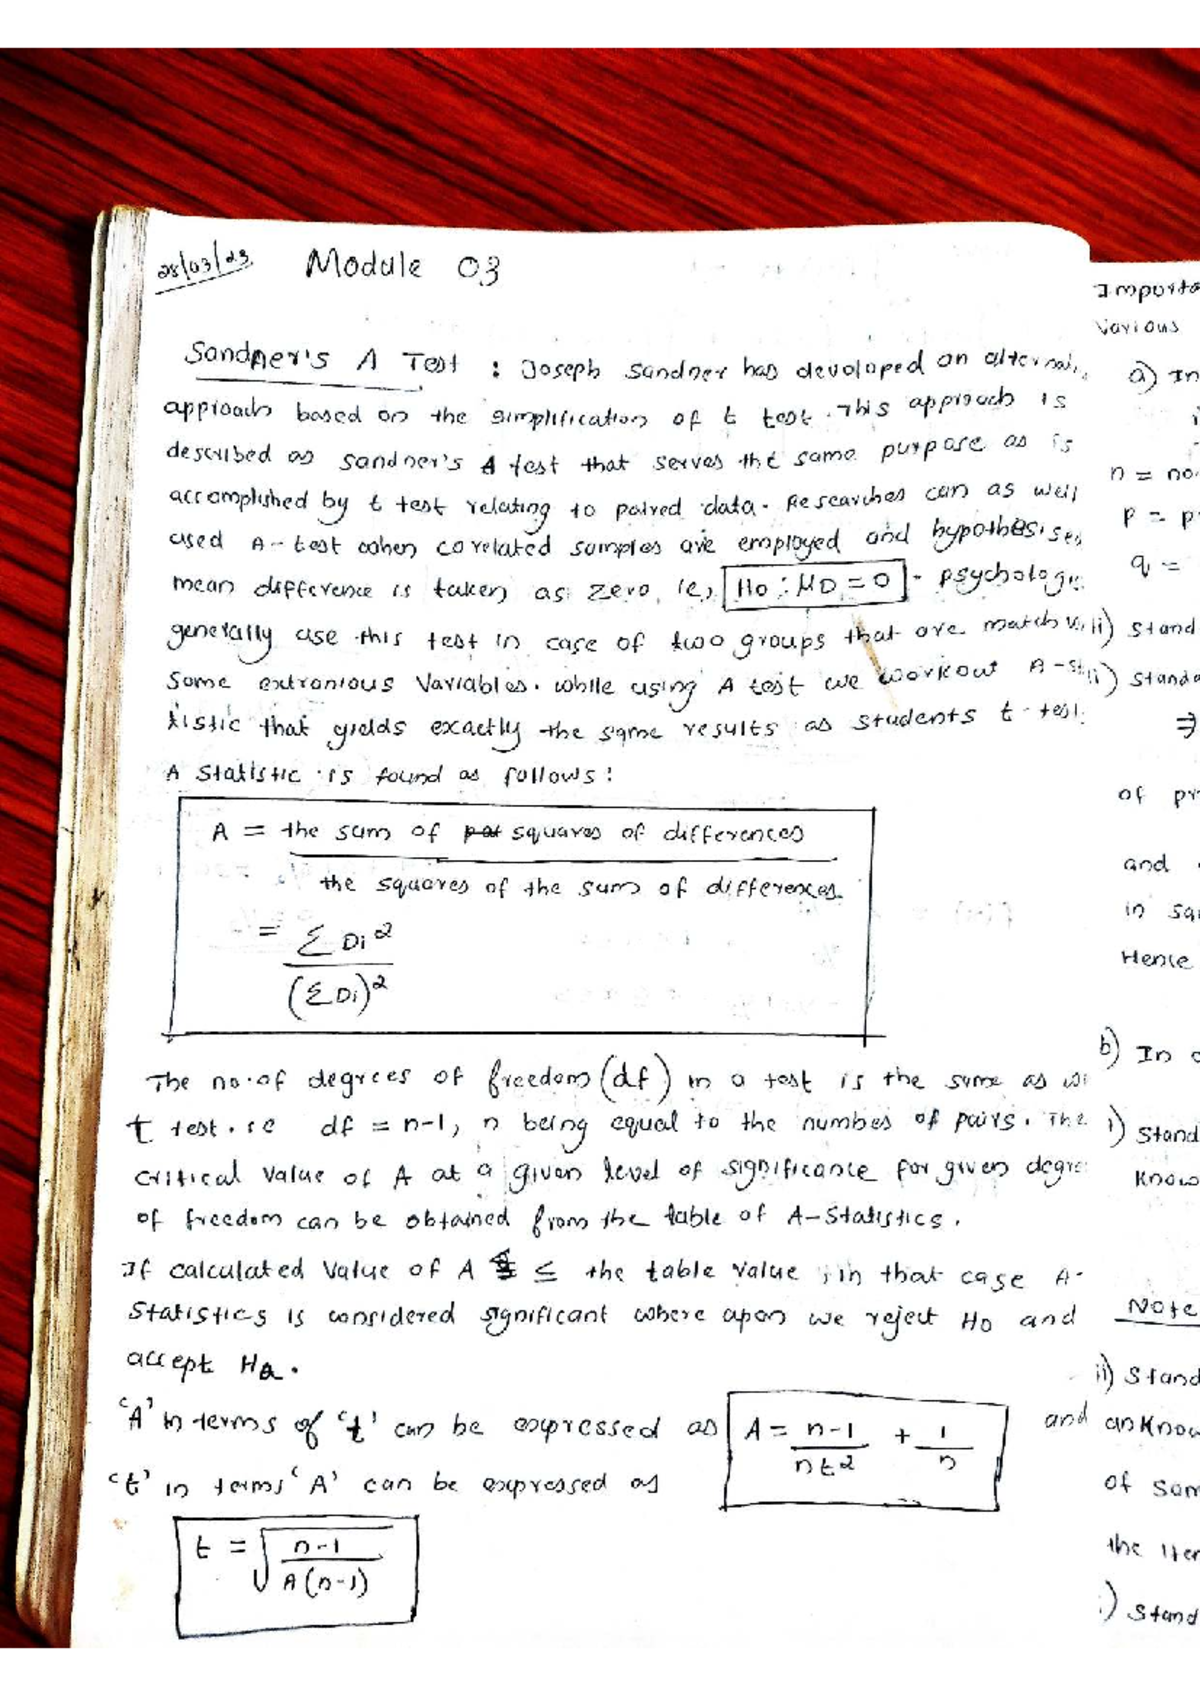 25/03/23 Module 03
Sandner's A Test : Joseph Sandner has devoloped an alternat
approach based on the simplification of t test. This approach is
described as Sandner's A test that serves the same purpose as is
accomplished by t test relating to paired data. Researches can as well
used A-test when corelated samples are employed and hypothesised
mean difference is taken as zero ie, H0 : MD = 0. psychologi
generally use this test in case of two groups that are match w
Some extranious Variables. while using A test we workout A-st
tistic that yields exactly the same results as students t-test.
A Statistic is found as follows :
A = the sum of squares of differences
the squares of the sum of differences
= Σ Di²
(ΣDi)²
The no.of degrees of freedom (df) in a test is the same as wi
t test. ie df = n-1, n being equal to the number of pairs. The
critical value of A at a given level of significance for given degre
of freedom can be obtained from the table of A-Statistics.
If calculated Value of A ≤ the table value, in that case A-
Statistics is considered significant where upon we reject H0 and
accept Ha.
'A' in terms of 't' can be expressed as A = n-1 + 1 and
nt² n
't' in terms 'A' can be expressed as
t = √ n-1
A(n-1)
Importa
Various
a) In
n = no.
p = p
q =
ii) Stand
ii) Standa
⇒
of pr
and
in sa
Hence
b) In
i) Stand
Know
Note
ii) Stand
anknow
of Sam
the iter
i) Stand